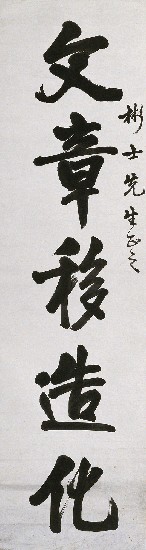 彬士先生正之
文章移造化